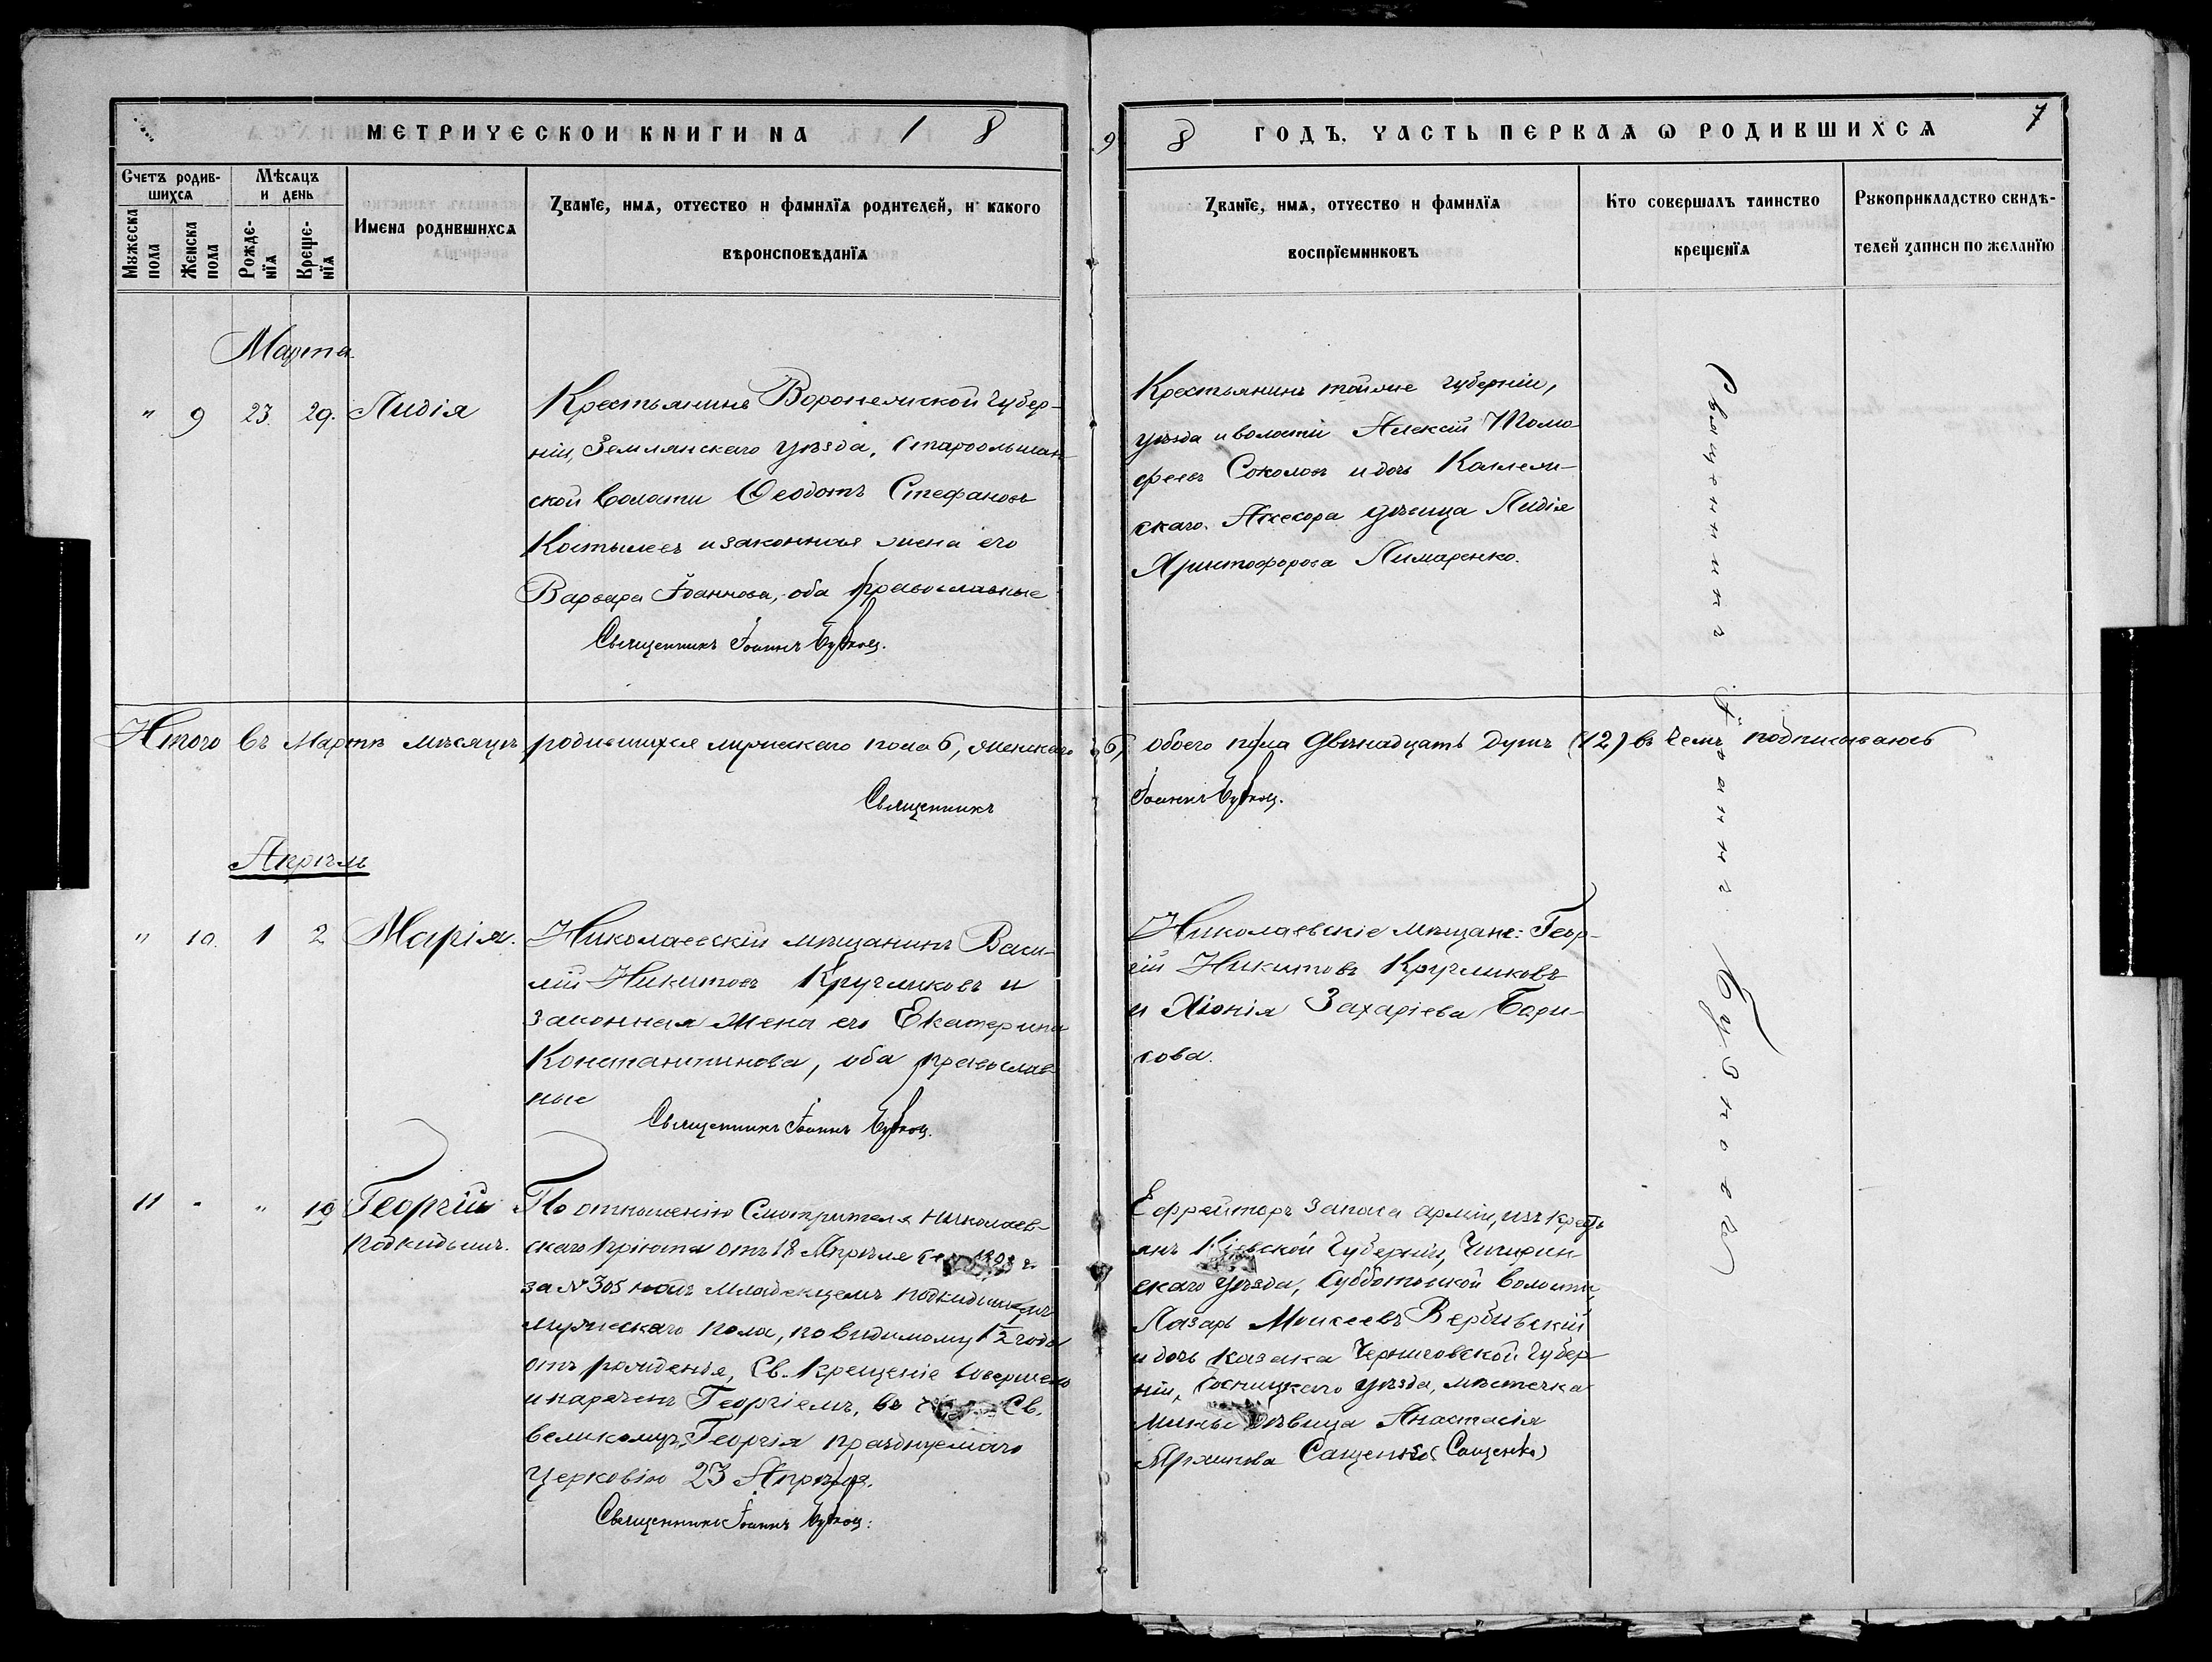 МЕТРИЧЕСКОИ КНИГИ НА 1 8
9 8 ГОДЪ, ЧАСТЬ ПЕРВАѦ Ѡ РОДИВШИХСѦ 7
Счетъ родив-
шихсѧ
Мѣсѧцъ
и день
Мꙋжеска
пола
Женска
пола
Рожде-
нїѧ
Креще-
нїѧ
Имена родившихсѧ
Званїе, имѧ, отчество и фамилїѧ родителей, и какого
вѣроисповѣданїѧ
Званїе, имѧ, отчество и фамилїѧ
воспрїемниковъ
Кто совершалъ таинство
крещенїѧ
Рꙋкоприкладство свидѣ-
телей записи по желанїю
Марта
" 9 23. 29. Лидія
Крестьянинъ Воронежской губер-
ніи, Землянскаго уѣзда, Староольшан
ской волости Ѳеодотъ Стефановъ
Костылевъ и законная жена его
Варвара Іоаннова, оба православные
Священникъ Іоаннъ
Крестьянинъ тойже губерніи,
уѣзда и волости Алексій Тимо
феевъ Соколовъ и дочь Коллеж-
скаго Ассесора дѣвица Лидія
Христофорова Лимаренко.
Итого въ Мартѣ мѣсяцѣ родившихся мужескаго пола 6, женскаго 6, обоего пола двѣнадцать душъ (12) въ чемъ подписываюсь
Священникъ Іоаннъ
Апрѣль
" 10. 1 2 Марія.
Николаевскій мѣщанинъ Васи-
лій Никитовъ Кругликовъ и
законная жена его Екатерина
Константинова, оба православ
ные
Священникъ Іоаннъ
Николаевскіе мѣщане: Геор-
гій Никитовъ Кругликовъ
и Хіонія Захаріева Бори-
сова.
11 " " 19 Георгій
подкидышъ.
По отношенію Смотрителя Николаев-
скаго пріюта отъ 18 Апрѣля 1898 г.
за № 305 надъ младенцемъ подкидышемъ
мужескаго пола, повидимому 1 1/2 года
отъ рожденія, Св. Крещеніе совершено
и нареченъ Георгіемъ, въ Св.
великомуч. Георгія празднуемаго
Церковію 23 Апрѣля.
Священникъ Іоаннъ
Ефрейторъ запаса арміи, изъ крестъ
янъ Кіевской Губерніи, Чигирин
скаго уѣзда, Субботской волости,
Лазарь Моисеевъ Вербивскій
и дочь казака Черниговской губер
ніи, Сосницкаго уѣзда, мѣстечка
Мины дѣвица Анастасія
Архипова Сащенко (Сащенко)
Священникъ Іоаннъ